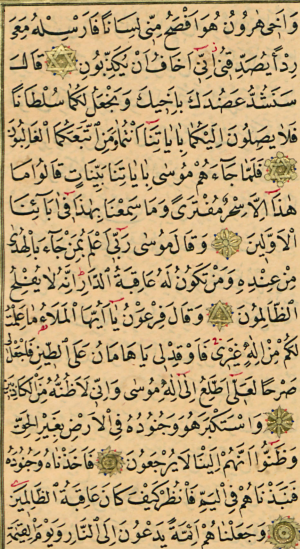 وَاَخِى هٰرُونُ هُوَ اَفْصَحُ مِنّى لِسَانًا فَاَرْسِلْهُ مَعِىَ
رِدْاً يُصَدِّقُنِى اِنّى اَخَافُ اَنْ يُكَذِّبُونِ قَالَ
سَنَشُدُّ عَضُدَكَ بِاَخِيكَ وَنَجْعَلُ لَكُمَا سُلْطَانًا
فَلَا يَصِلُونَ اِلَيْكُمَا بِاٰيَاتِنَا اَنْتُمَا وَمَنِ اتَّبَعَكُمَا الْغَالِبُونَ
فَلَمَّا جَاءَهُمْ مُوسٰى بِاٰيَاتِنَا بَيِّنَاتٍ قَالُوا مَا
هٰذَا اِلَّا سِحْرٌ مُفْتَرًى وَمَا سَمِعْنَا بِهٰذَا فِى اٰبَائِنَا
الْاَوَّلِينَ وَقَالَ مُوسٰى رَبِّى اَعْلَمُ بِمَنْ جَاءَ بِالْهُدٰى
مِنْ عِنْدِهِ وَمَنْ تَكُونُ لَهُ عَاقِبَةُ الدَّارِ اِنَّهُ لَا يُفْلِحُ
الظَّالِمُونَ وَقَالَ فِرْعَوْنُ يَا اَيُّهَا الْمَلَاُ مَا عَلِمْتُ
لَكُمْ مِنْ اِلٰهٍ غَيْرِى فَاَوْقِدْ لِى يَا هَامَانُ عَلَى الطِّينِ فَاجْعَلْ لِى
صَرْحًا لَعَلّى اَطَّلِعُ اِلٰى اِلٰهِ مُوسٰى وَاِنّى لَاَظُنُّهُ مِنَ الْكَاذِبِينَ
وَاسْتَكْبَرَ هُوَ وَجُنُودُهُ فِى الْاَرْضِ بِغَيْرِ الْحَقِّ
وَظَنُّوا اَنَّهُمْ اِلَيْنَا لَا يُرْجَعُونَ فَاَخَذْنَاهُ وَجُنُودَهُ
فَنَبَذْنَاهُمْ فِى الْيَمِّ فَانْظُرْ كَيْفَ كَانَ عَاقِبَةُ الظَّالِمِينَ
وَجَعَلْنَاهُمْ اَئِمَّةً يَدْعُونَ اِلَى النَّارِ وَيَوْمَ الْقِيٰمَةِ